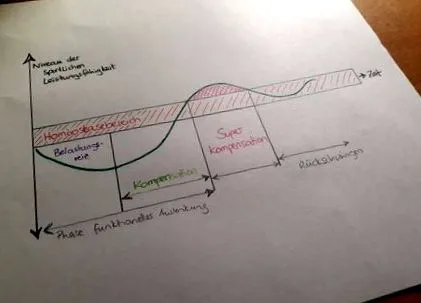 Niveau der
sportlichen
Leistungsfähigkeit
Zeit
Homöostasebereich
Belastungs-
reiz
Kompensation
Super
Kompensation
Rückschwingen
Phase funktioneller Auslenkung